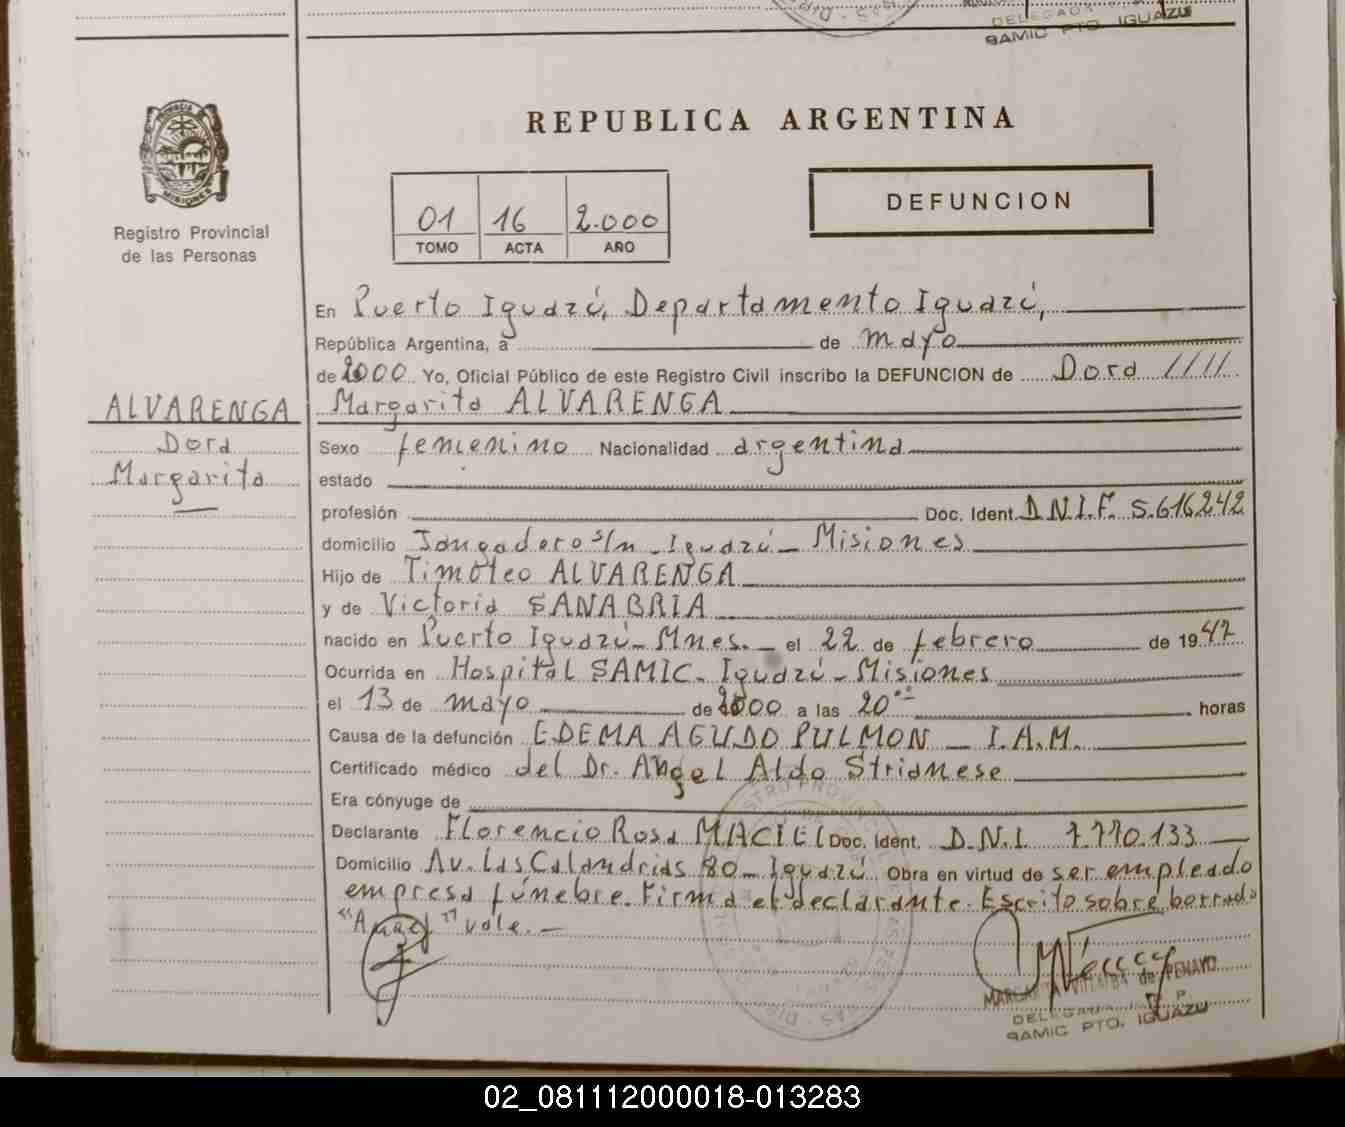 DELEGADA
SAMIC PTO. IGUAZU
PROVINCIA
MISIONES
Registro Provincial
de las Personas
REPUBLICA ARGENTINA
01 16 2.000
TOMO ACTA AÑO
DEFUNCION
En Puerto Iguazú, Departamento Iguazú,
República Argentina, a de mayo
de 2000 Yo, Oficial Público de este Registro Civil inscribo la DEFUNCION de Dora ////
Margarita ALVARENGA
ALVARENGA
Dora
Margarita
Sexo femenino Nacionalidad argentina
estado
profesión Doc. Ident. D.N.I.F. 5.616.242
domicilio Jangadero s/n - Iguazú - Misiones
Hijo de Timoteo ALVARENGA
y de Victoria SANABRIA
nacido en Puerto Iguazú - Mnes. - el 22 de febrero de 1947
Ocurrida en Hospital SAMIC - Iguazú - Misiones
el 13 de mayo de 2000 a las 20 horas
Causa de la defunción EDEMA AGUDO PULMON - I.A.M.
Certificado médico del Dr. Angel Aldo Strianese
Era cónyuge de
Declarante Florencio Rosa MACIEL Doc. Ident. D.N.I. 7.770.133
Domicilio Av. Las Calandrias 80 - Iguazú Obra en virtud de ser empleado
empresa fúnebre. Firma el declarante. Escrito sobre borrado
vale. -
MARGARITA VILLALBA de PENAYO
DELEGADA
SAMIC PTO. IGUAZU
02_081112000018-013283